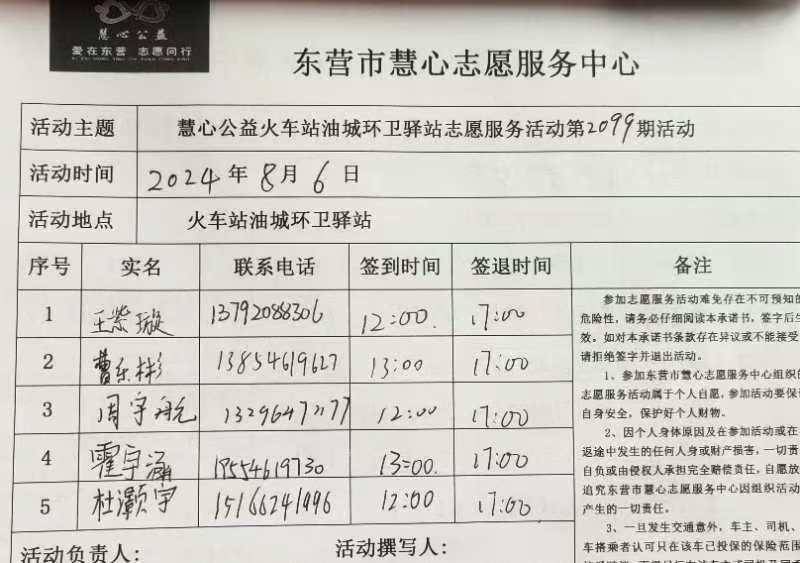 慧心公益
爱在东营 志愿同行
东营市慧心志愿服务中心
活动主题 慧心公益火车站油城环卫驿站志愿服务活动第2099期活动
活动时间 2024年8月6日
活动地点 火车站油城环卫驿站
序号 实名 联系电话 签到时间 签退时间 备注
1 王紫璇 13792088306 12:00. 17:00
2 曹乐彬 13854619627 13:00 17:00
3 周宇航 12:00 17:00
4 霍宇涵 19554619730 13:00. 17:00
5 杜灏宇 15166241996 12:00 17:00
参加志愿服务活动难免存在不可预知的
危险性，请务必仔细阅读本承诺书，签字后生
效。如对本承诺书条款存在异议或不能接受
请拒绝签字并退出活动。
1、参加东营市慧心志愿服务中心组织的
志愿服务活动属于个人自愿，参加活动要保
自身安全，保护好个人财物。
2、因个人身体原因及在参加活动或在
返途中发生的任何人身或财产损害，一切责
自负或由侵权人承担完全赔偿责任，自愿放
追究东营市慧心志愿服务中心因组织活动
产生的一切责任。
3、一旦发生交通意外，车主、司机、
车搭乘者认可只在该车已投保的保险范围
活动负责人： 活动撰写人：